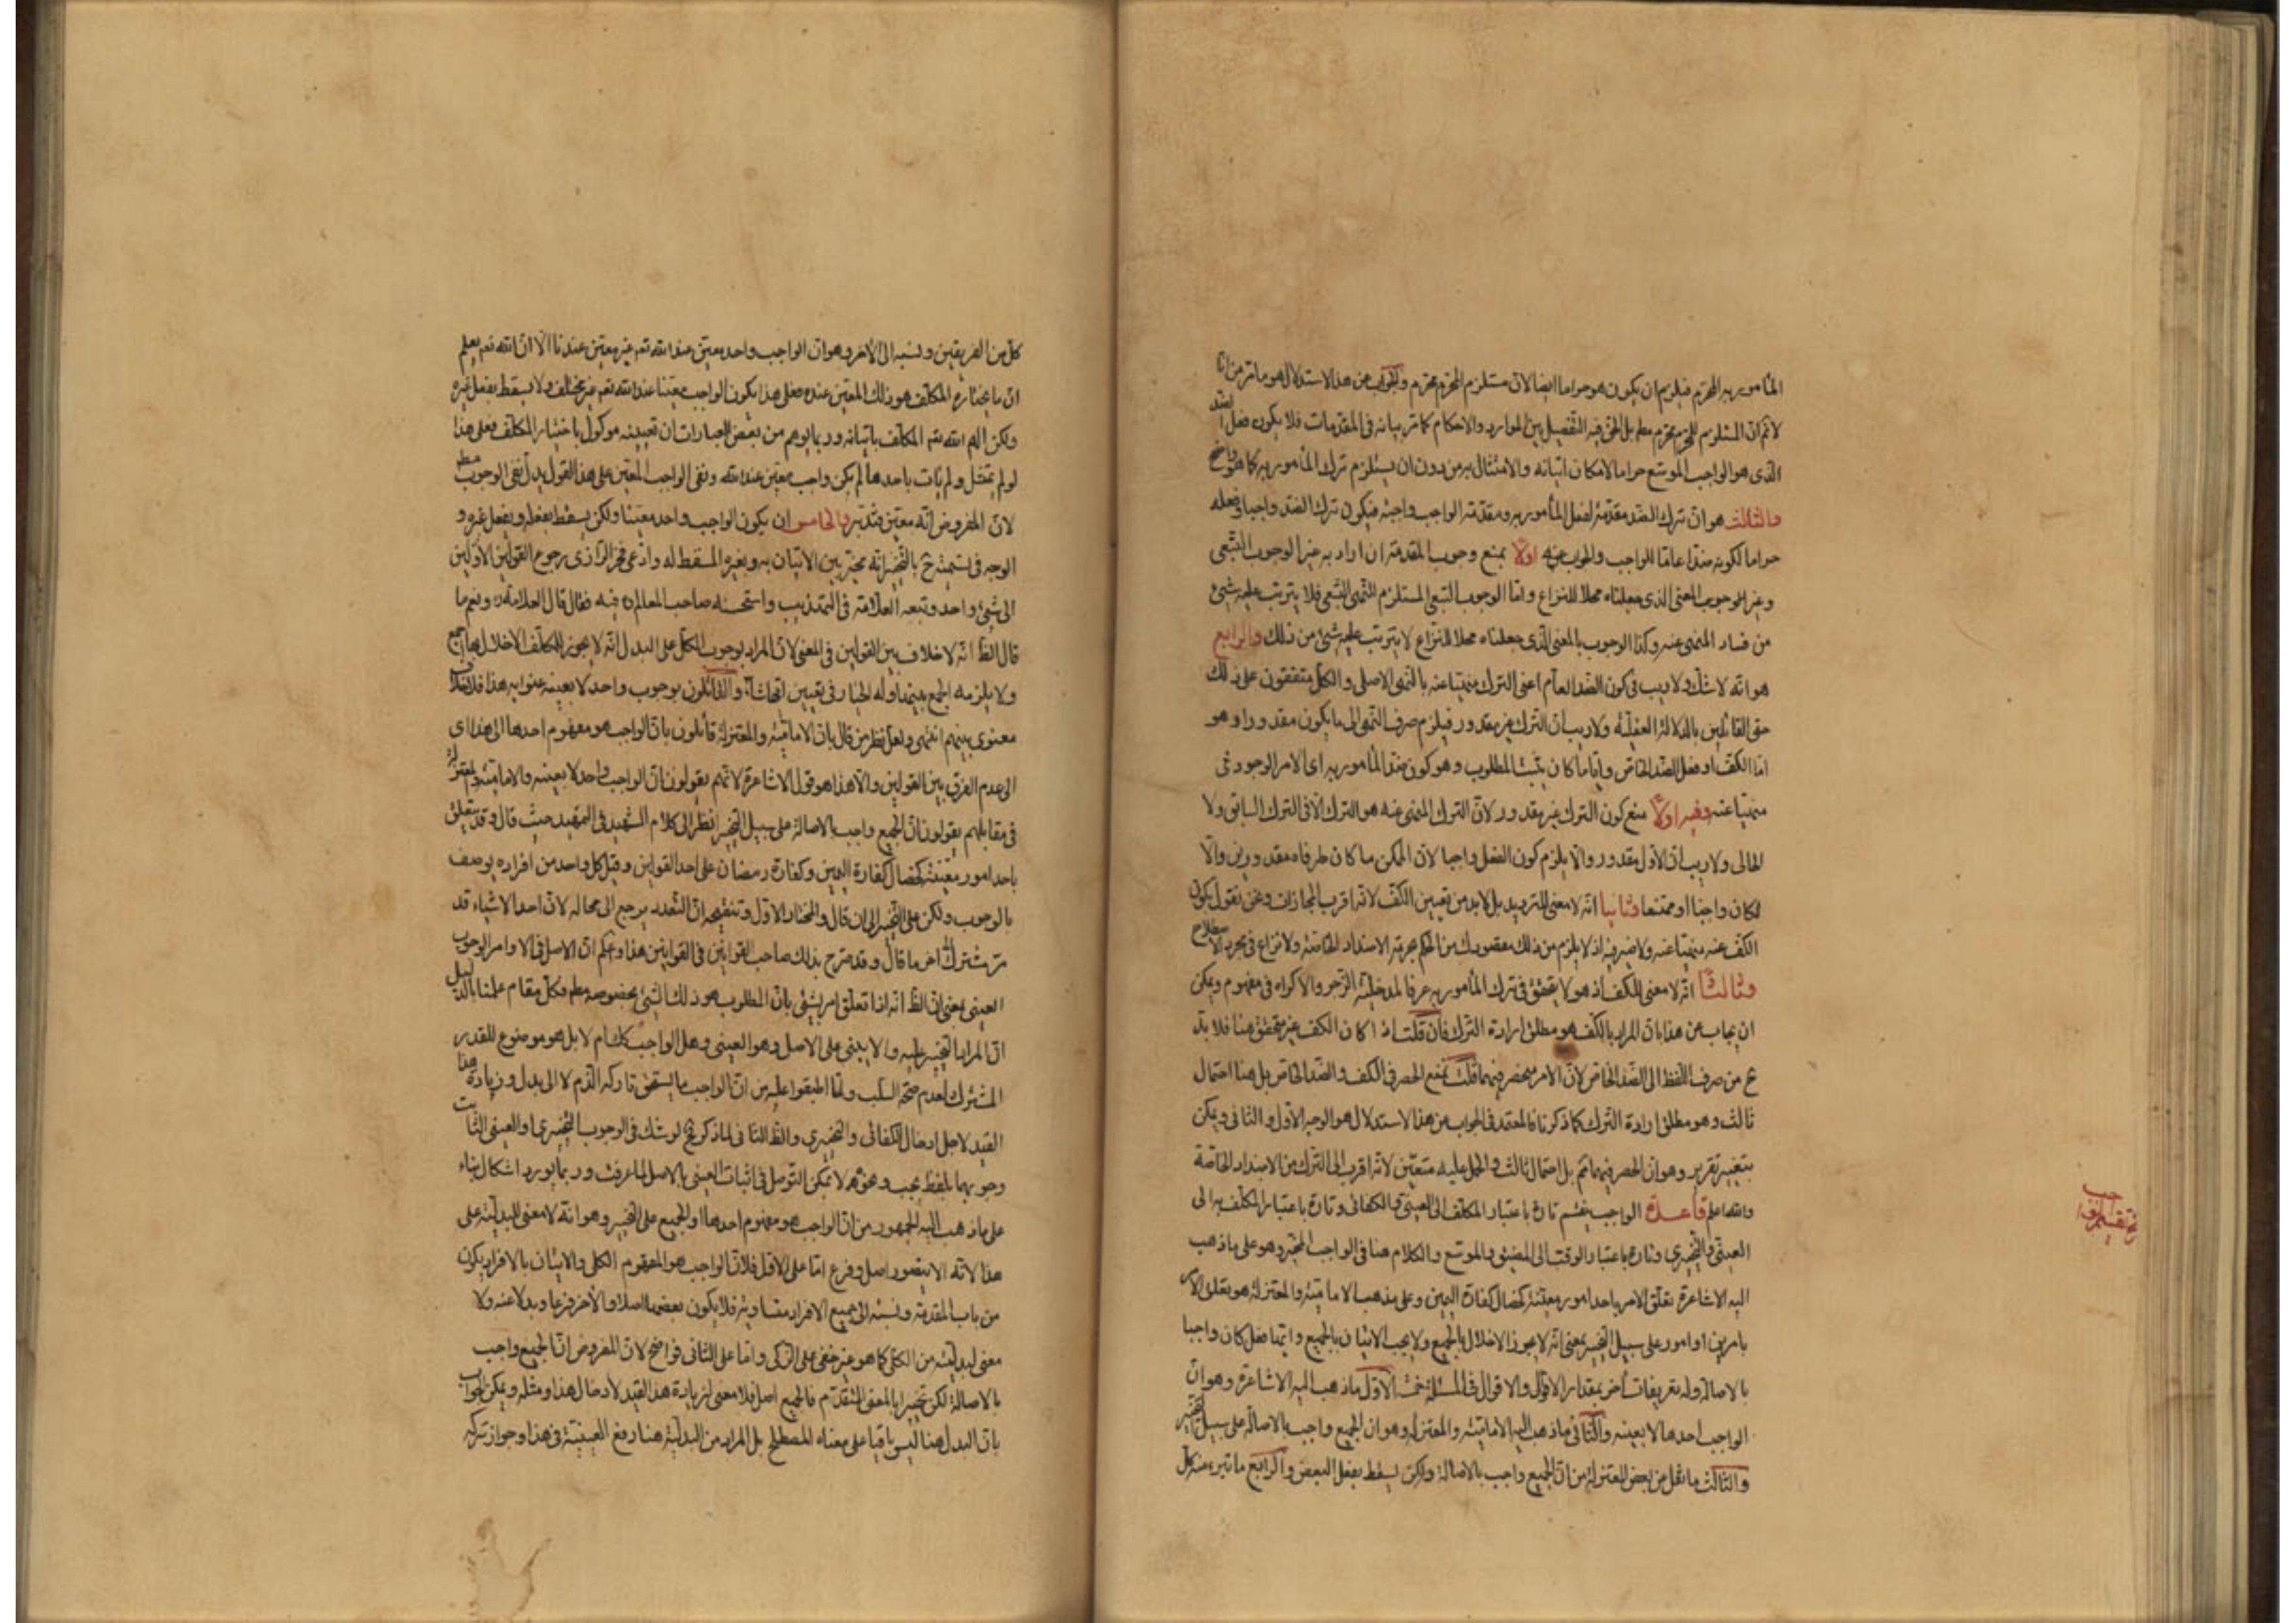 المأمور به المحرم فيلزم ان يكون هو حراما ايضا لان مستلزم المحرم محرم والجواب عن هذا الاستدلال هو ما مر من انا
لا نم ان المستلزم للمحرم محرم مطم بل الحق فيه التفصيل بين الموارد والاحكام كما مر بيانه فى المقدمات فلا يكون فعل الضد
الذى هو الواجب الموسع حراما لامكان اتيانه والامتثال به من دون ان يستلزم ترك المأمور به كما هو واضح
والثالث هو ان ترك الضد مقدمة لفعل المأمور به ومقدمة الواجب واجبة فيكون ترك الضد واجبا وفعله
حراما لكونه ضدا عاما للواجب والجواب عنه اولا بمنع وجوب المقدمة ان اراد به غير الوجوب التبعى
وغير الوجوب المعنى الذى جعلناه محلا للنزاع واما الوجوب التبعى المستلزم للنهى التبعى فلا يترتب عليه شئ
من فساد المنهى عنه وكذا الوجوب بالمعنى الذى جعلناه محلا للنزاع لا يترتب عليه شئ من ذلك والرابع
هو انه لا شك ولا ريب فى كون الضد العام اعنى الترك منهيا عنه بالنهى الاصلى والكل متفقون على ذلك
حتى القائلين بالدلالة العقلية ولا ريب ان الترك غير مقدور فيلزم صرف النهى الى ما يكون مقدورا وهو
اما الكف او فعل الضد الخاص واياما كان يثبت المطلوب وهو كون ضد المأمور به اى الامر الوجودى
منهيا عنه وفيه اولا منع كون الترك غير مقدور لان الترك المنهى عنه هو الترك الآتى لا الترك السابق ولا
الحالى ولا ريب ان الاول مقدور والا يلزم كون الفعل واجبا لان الممكن ما كان طرفاه مقدورين والا
لكان واجبا او ممتنعا وثانيا انه لا معنى للترديد بل لابد من تعيين الكف لانه اقرب المجازات ونحن نقول بكون
الكف عنه منهيا عنه ولا ضير فيه اذ لا يلزم من ذلك مقصودك من الحكم بحرمة الاضداد الخاصة ولا نزاع فى مجرد الاصطلاح
وثالثا انه لا معنى للكف اذ هو لا يتحقق فى ترك المأمور به عرفا لمدخلية الزجر والاكراه فى مفهومه ويمكن
ان يجاب عن هذا بان المراد بالكف هو مطلق ارادة الترك فان قلت اذا كان الكف غير متحقق هنا فلا بد
ح من صرف اللفظ الى الضد الخاص لان الامر منحصر فيهما قلت نمنع الحصر فى الكف والضد الخاص بل هنا احتمال
ثالث وهو مطلق ارادة الترك كما ذكرنا فالمعتمد فى الجواب عن هذا الاستدلال هو الوجه الاول والثانى ويمكن
بتغيير تقرير وهو ان الحصر فيهما نم بل احتمال ثالث والحمل عليه متعين لانه اقرب الى الترك من الاضداد الخاصة
والله اعلم قاعدة الواجب ينقسم تارة باعتبار المكلف الى العينى والكفائى وتارة باعتبار المكلف به الى
العينى والتخييرى وتارة باعتبار الوقت الى المضيق والموسع والكلام هنا فى الواجب المخير وهو على ما ذهب
اليه الاشاعرة تعلق الامر باحد امور معينة كخصال كفارة اليمين وعلى مذهب الامامية والمعتزلة هو تعلق الامر
بامرين او امور على سبيل التخيير بمعنى انه لا يجوز الاخلال بالجميع ولا يجب الاتيان بالجميع وايتها فعل كان واجبا
بالاصالة وله تعريفات أخر بمقدار الاقوال والاقوال فى المسئلة خمسة الاول ما ذهب اليه الاشاعرة وهو ان
الواجب احدها لا بعينه والثانى ما ذهب اليه الامامية والمعتزلة وهو ان الجميع واجب بالاصالة على سبيل التخيير
والثالث ما نقل عن بعض المعتزلة من ان الجميع واجب بالاصالة ولكن يسقط بفعل البعض والرابع ما تبرء منه كل
فى تقسيم الواجب
كل من الفريقين ونسبه الى الاخر وهو ان الواجب واحد معين عند الله تعم غير معين عندنا الا ان الله تعم يعلم
ان ما يختاره المكلف هو ذلك المعين عنده فعلى هذا يكون الواجب معينا عند الله تعم غير مختلف ولا يسقط بفعل غيره
ولكن الهم الله تعم المكلف باتيانه وربما يوهم من بعض العبارات ان تعيينه موكول باختيار المكلف فعلى هذا
لو لم يمتثل ولم يات باحدها لم يكن واجب معين عند الله ونفى الواجب المعين على هذا القول يدل نفى الوجوب مطم
لان المفروض انه معين فتدبر والخامس ان يكون الواجب واحد معينا ولكن يسقط بفعله وبفعل غيره و
الوجه فى تسميته ح بالتخيير انه مخير بين الاتيان به وبغيره المسقط له وادعى فخر الرازى رجوع القولين الاولين
الى شئ واحد وتبعه العلامة فى التهذيب واستحسنه صاحب المعالم ره فيه فقال قال العلامة ره ونعم ما
قال الظ انه لا خلاف بين القولين فى المعنى لان المراد بوجوب الكل على البدل انه لا يجوز للمكلف الاخلال بها اجمع
ولا يلزمه الجمع بينها وله الخيار فى تعيين ايها شاء والقائلون بوجوب واحد لا بعينه عنوا به هذا فلا خلاف
معنوى بينهم انتهى ولعل نظر من قال بان الامامية والمعتزلة قائلون بان الواجب هو مفهوم احدها الى هذا اى
الى عدم الفرق بين القولين والا هذا هو قول الاشاعرة لانهم يقولون ان الواجب واحد لا بعينه والامامية والمعتزلة
فى مقابلهم يقولون ان الجميع واجب بالاصالة على سبيل التخيير انظر الى كلام الشهيد فى التمهيد حيث قال وقد يتعلق
باحد امور معينة كخصال كفارة اليمين وكفارة رمضان على احد القولين وقيل كل واحد من افراده يوصف
بالوجوب ولكن على التخيير الى ان قال والمختار الاول وتنقيحه ان التعدد يرجع الى محاله لان احد الاشياء قدر
مشترك الى اخر ما قال وقد صرح بذلك صاحب القوانين فى القوانين هذا واعلم ان الاصل فى الاوامر الوجوب
العينى بمعنى ان الظ انه اذا تعلق امر بشئ بان المطلوب هو ذلك الشئ بخصوصه مطم فكل مقام علمنا بالدليل
ان المراد التخيير عليه والا يبنى على الاصل وهو العينى وهل الواجب كك ام لا بل هو موضوع للقدر
المشترك لعدم صحة السلب ولما اطبقوا عليه من ان الواجب ما يستحق تاركه الذم لا الى بدل وزيادة هذا
القيد لاجل ادخال الكفائى والتخييرى والظ الثانى لما ذكر فح لو شك فى الوجوب التخييرى والعينى الثابت
وجوبهما بلفظ يجب ونحوه لا يمكن التوصل فى اثبات العينى بالاصل لما عرفت وربما يورد اشكال بناء
على ما ذهب اليه الجمهور من ان الواجب هو مفهوم احدها او الجميع على التخيير وهو انه لا معنى للبدلية على
هذا لانه لا يتصور اصل وفرع اما على الاول فلان الواجب هو المفهوم الكلى والاتيان بالافراد يكون
من باب المقدمة ونسبته الى جميع الافراد متساوية فلا يكون بعضها اصلا والآخر فرعا وبدلا عنه ولا
معنى لبدليته من الكلى كما هو غير خفى على الزكى واما على الثانى فواضح لان المفروض ان الجميع واجب
بالاصالة لكن تخييرا بالمعنى المتقدم فالجميع اصل فلا معنى لزيادة هذا القيد لادخال هذا ومثله ويمكن الجواب
بان البدل هنا ليس باقيا على معناه المصطلح بل المراد من البدلية هنا رفع العينية فى هذا وجواز تركه